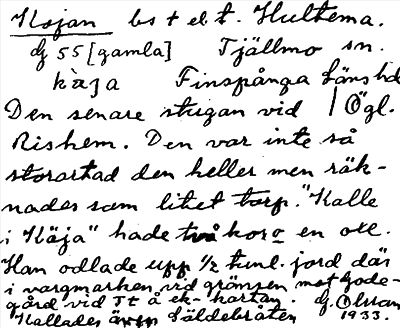 Kojan bs t el. t. Hultema.
dj 55 [gamla] Tjällmo sn.
kàja Finspånga läns hd
Den senare stugan vid | Ögl.
Rishem. Den var inte så
storartad den heller men räk-
nades som litet torp. "Kalle
i Käja" hade två kor o en oxe.
Han odlade upp 1/2 tunl. jord där
i vargmarken vid gränsen mot Gode-
gård vid å ek-kartan. G. Olsson
Kallades även Fäldebråten 1933.